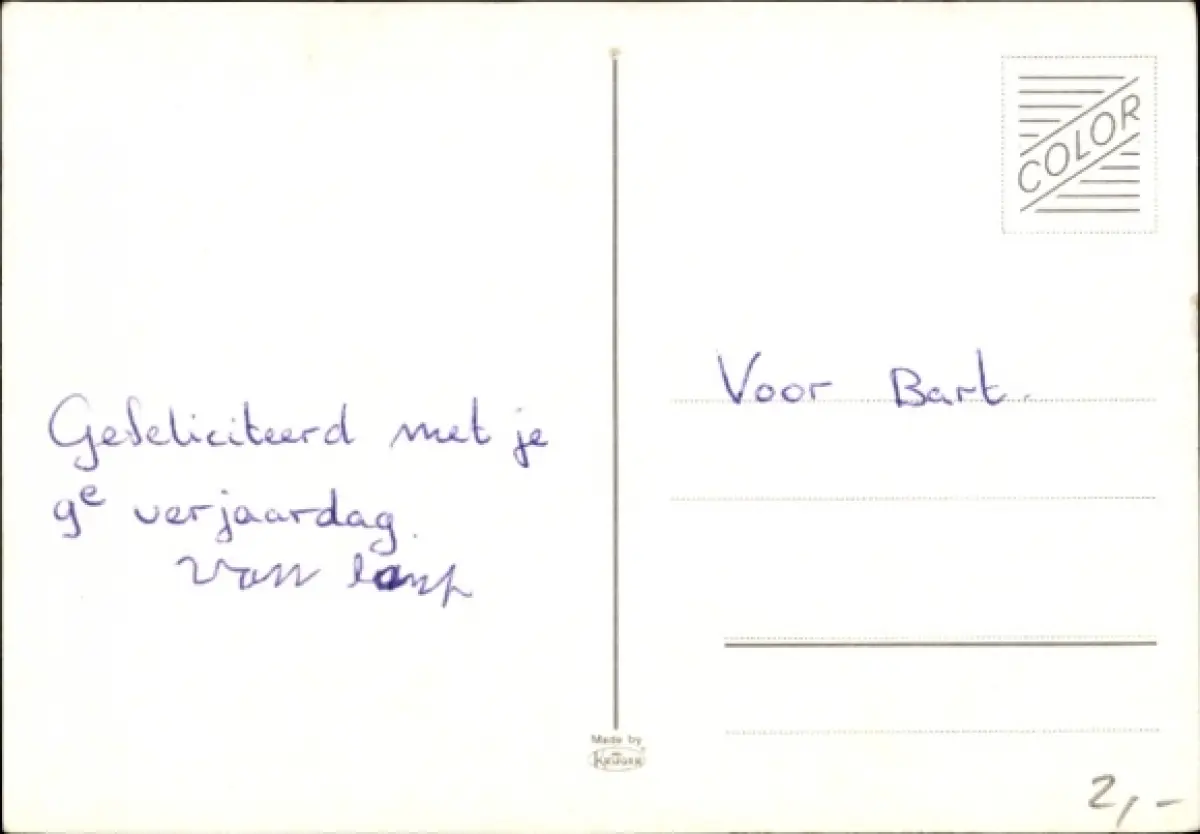 COLOR
Gefeliciteerd met je
9e verjaardag.
van
Voor Bart.
Made by
KRÜGER
2,-